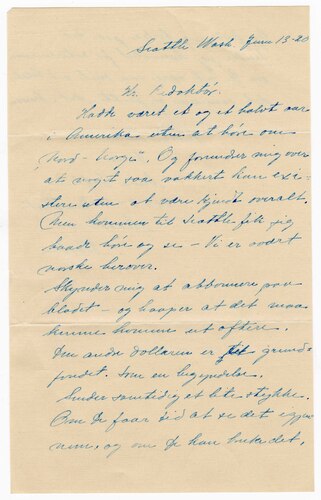 Seattle Wash. June 13-20
Hr. Redaktör.
Hadde været et og et halvt aar
i Amerika uten at höre om
"Nord-Norge". Og forundrer mig over
at noget saa vakkert kan exi-
stere uten at være kjendt overalt.
Men kommen til Seattle fik jeg
baade höre og se - Vi er
norske herover.
Skynder mig at abbonnere paa
bladet - og haaper at det maa
kunne komme ut oftere.
Den andre dollaren er til grund-
fondet. Som en begyndelse.
Sender samtidig et lite stykke.
Om De faar tid at se det igjen-
nem, og om De kan bruke det,